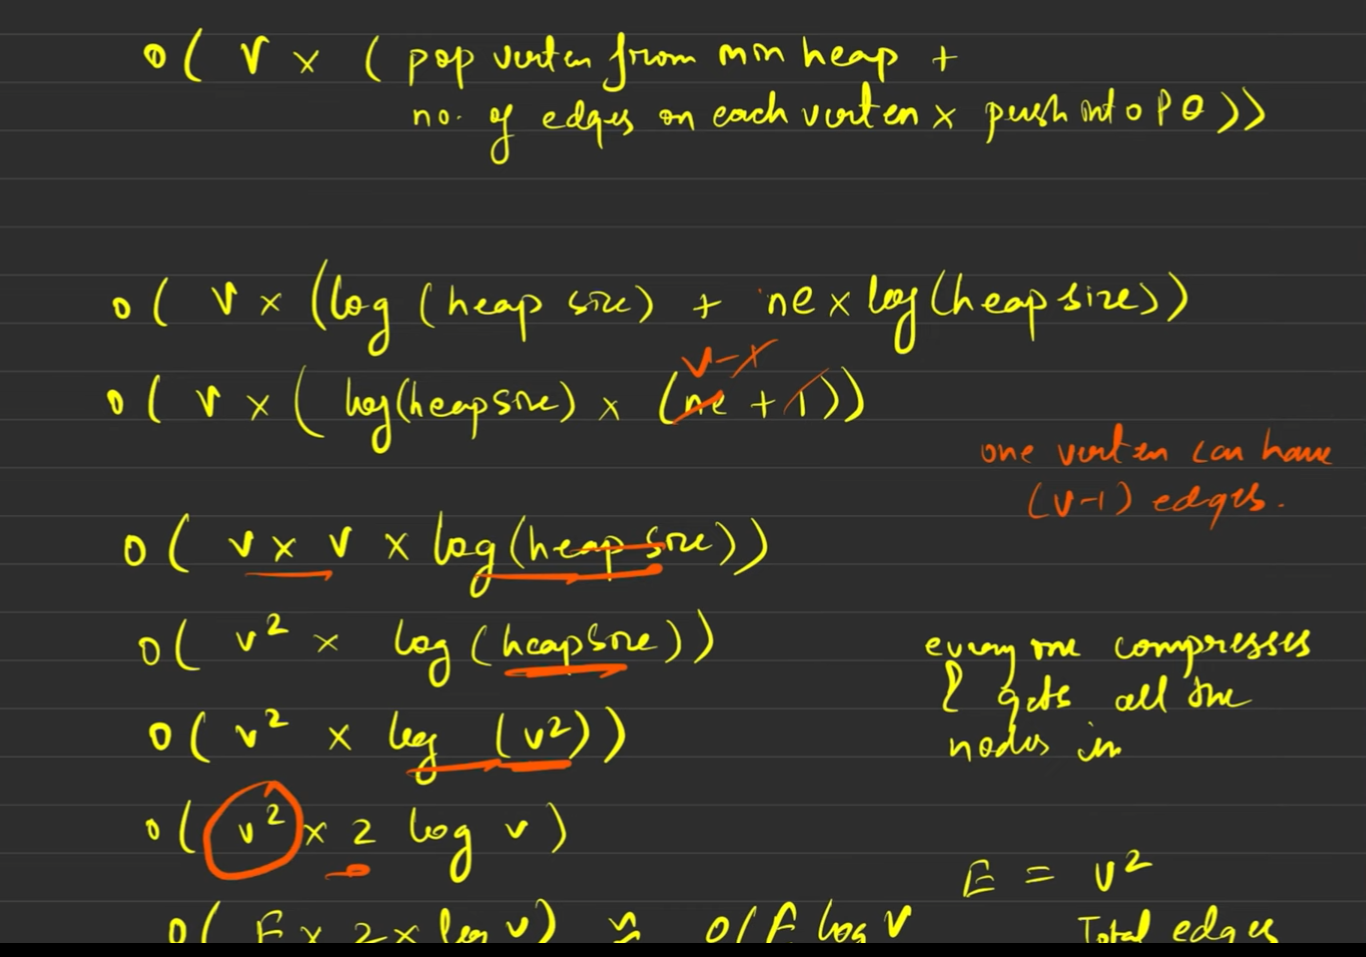 O( V × ( pop vertex from min heap +
no. of edges on each vertex × push into PQ ))
O( V × (log (heap size) + ne × log(heap size))
O( V × ( log(heapsize) × (ne + 1)))
V-1
one vertex can have
(V-1) edges.
O( V × V × log(heap size))
O( V² × log (heapsize))
every one compresses
& gets all the
nodes in
O( V² × log (V²))
O( V² × 2 log V)
E = V²
Total edges
O( E × 2 × log V) ≈ O(E log V